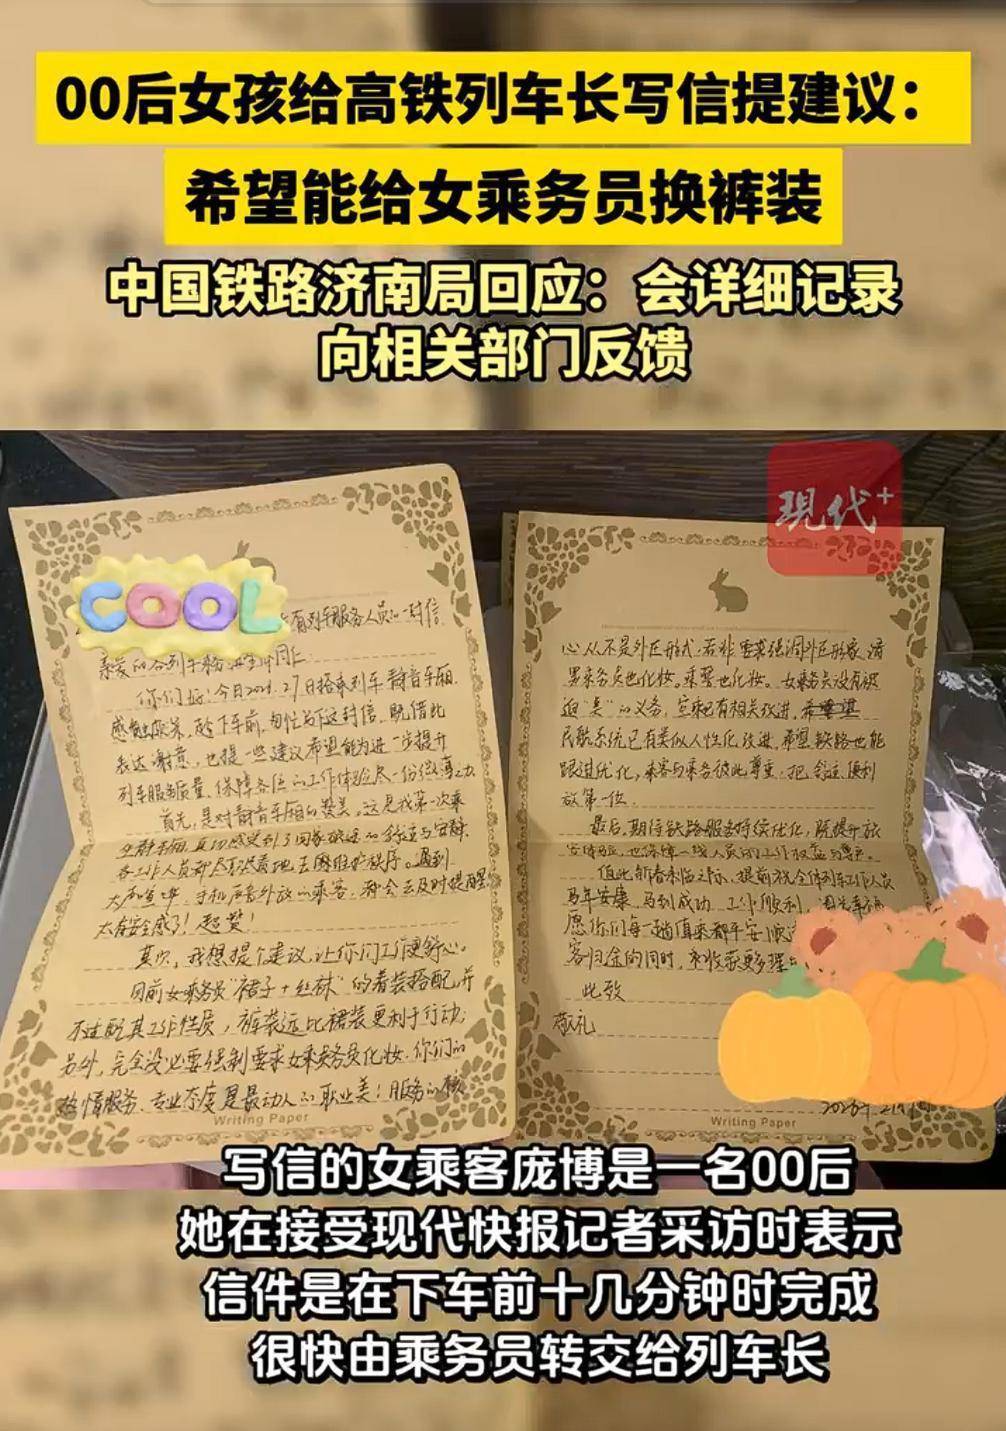 00后女孩给高铁列车长写信提建议：
希望能给女乘务员换裤装
中国铁路济南局回应：会详细记录
向相关部门反馈
現代+
COOL
有列车服务人员的一封信
亲爱的各列车
你们好！今日
感触颇深，趁下车前，匆忙写下这封信，既借此
表达谢意，也提一些建议希望能为进一步提升
列车服务质量、保障各位的工作体验尽一份微薄之力
首先，是对静音车厢的赞美。这是我第一次乘
坐静音车厢，真切感受到了回家旅途的舒适与安静
各工作人员都尽职尽责地去困维护秩序。遇到
大声喧哗、手机声音外放的乘客，都会去及时提醒
太有安全感了！超赞！
其次，我想提个建议，让你们工作更舒心。
目前女乘务员“裙子+丝袜”的着装搭配，并
不适配其工作性质，裤装远比裙装更利于行动；
另外，完全没必要强制要求女乘务员化妆，你们的
热情服务、专业态度是最动人的职业美！服务的核
Writing Paper
心从不是外在形式，若非要求强调外在形象，请
男乘务员也化妆。乘警也化妆。女乘务员没有被
迫“美”的义务，
民航系统已有类似人性化改进，希望铁路也能
跟进优化，乘客与乘务彼此尊重，把舒适、便利
放第一位。
最后，期待铁路服务持续优化，既提升旅
客体验，也保障一线人员的工作权益与尊严。
值此新春来临之际，提前祝全体列车工作人员
马年安康，马到成功，工作顺利，
愿你们每一趟值乘都平安顺
客归途的同时，
此致
敬礼
Writing Paper
写信的女乘客庞博是一名00后
她在接受现代快报记者采访时表示
信件是在下车前十几分钟时完成
很快由乘务员转交给列车长